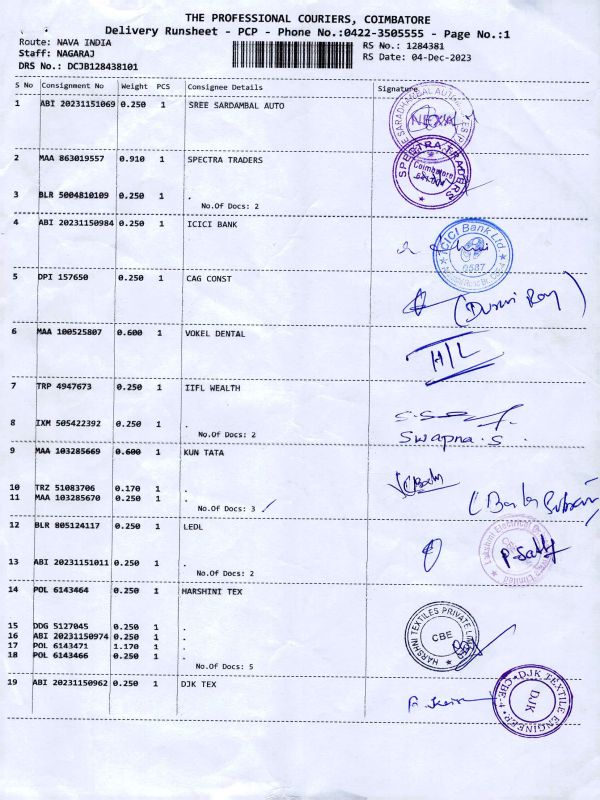 THE PROFESSIONAL COURIERS, COIMBATORE
Delivery Runsheet - PCP - Phone No.:0422-3505555 - Page No.:1
Route: NAVA INDIA
RS No.: 1284381
Staff: NAGARAJ
RS Date: 04-Dec-2023
DRS No.: DCJB128438101
S No Consignment No Weight PCS Consignee Details Signature
1 ABI 20231151069 0.250 1 SREE SARDAMBAL AUTO
NEXA
2 MAA 863019557 0.910 1 SPECTRA TRADERS
SPECTRA TRADERS
Coimbatore
3 BLR 5004810109 0.250 1 .
No.Of Docs: 2
4 ABI 20231150984 0.250 1 ICICI BANK
ICICI Bank Ltd
5 DPI 157650 0.250 1 CAG CONST
6 MAA 100525807 0.600 1 VOKEL DENTAL
H/L
7 TRP 4947673 0.250 1 IIFL WEALTH
8 IXM 505422392 0.250 1 .
No.Of Docs: 2
Swapna. S.
9 MAA 103285669 0.600 1 KUN TATA
10 TRZ 51083706 0.170 1 .
11 MAA 103285670 0.250 1 .
No.Of Docs: 3
12 BLR 805124117 0.250 1 LEDL
13 ABI 20231151011 0.250 1 .
No.Of Docs: 2
14 POL 6143464 0.250 1 HARSHINI TEX
HARSHNI TEXTILES PRIVATE LIMITED
CBE
15 DDG 5127045 0.250 1 .
16 ABI 20231150974 0.250 1 .
17 POL 6143471 1.170 1 .
18 POL 6143466 0.250 1 .
No.Of Docs: 5
19 ABI 20231150962 0.250 1 DJK TEX
DJK TEXTILE ENGINEER
CBE-4
DJK